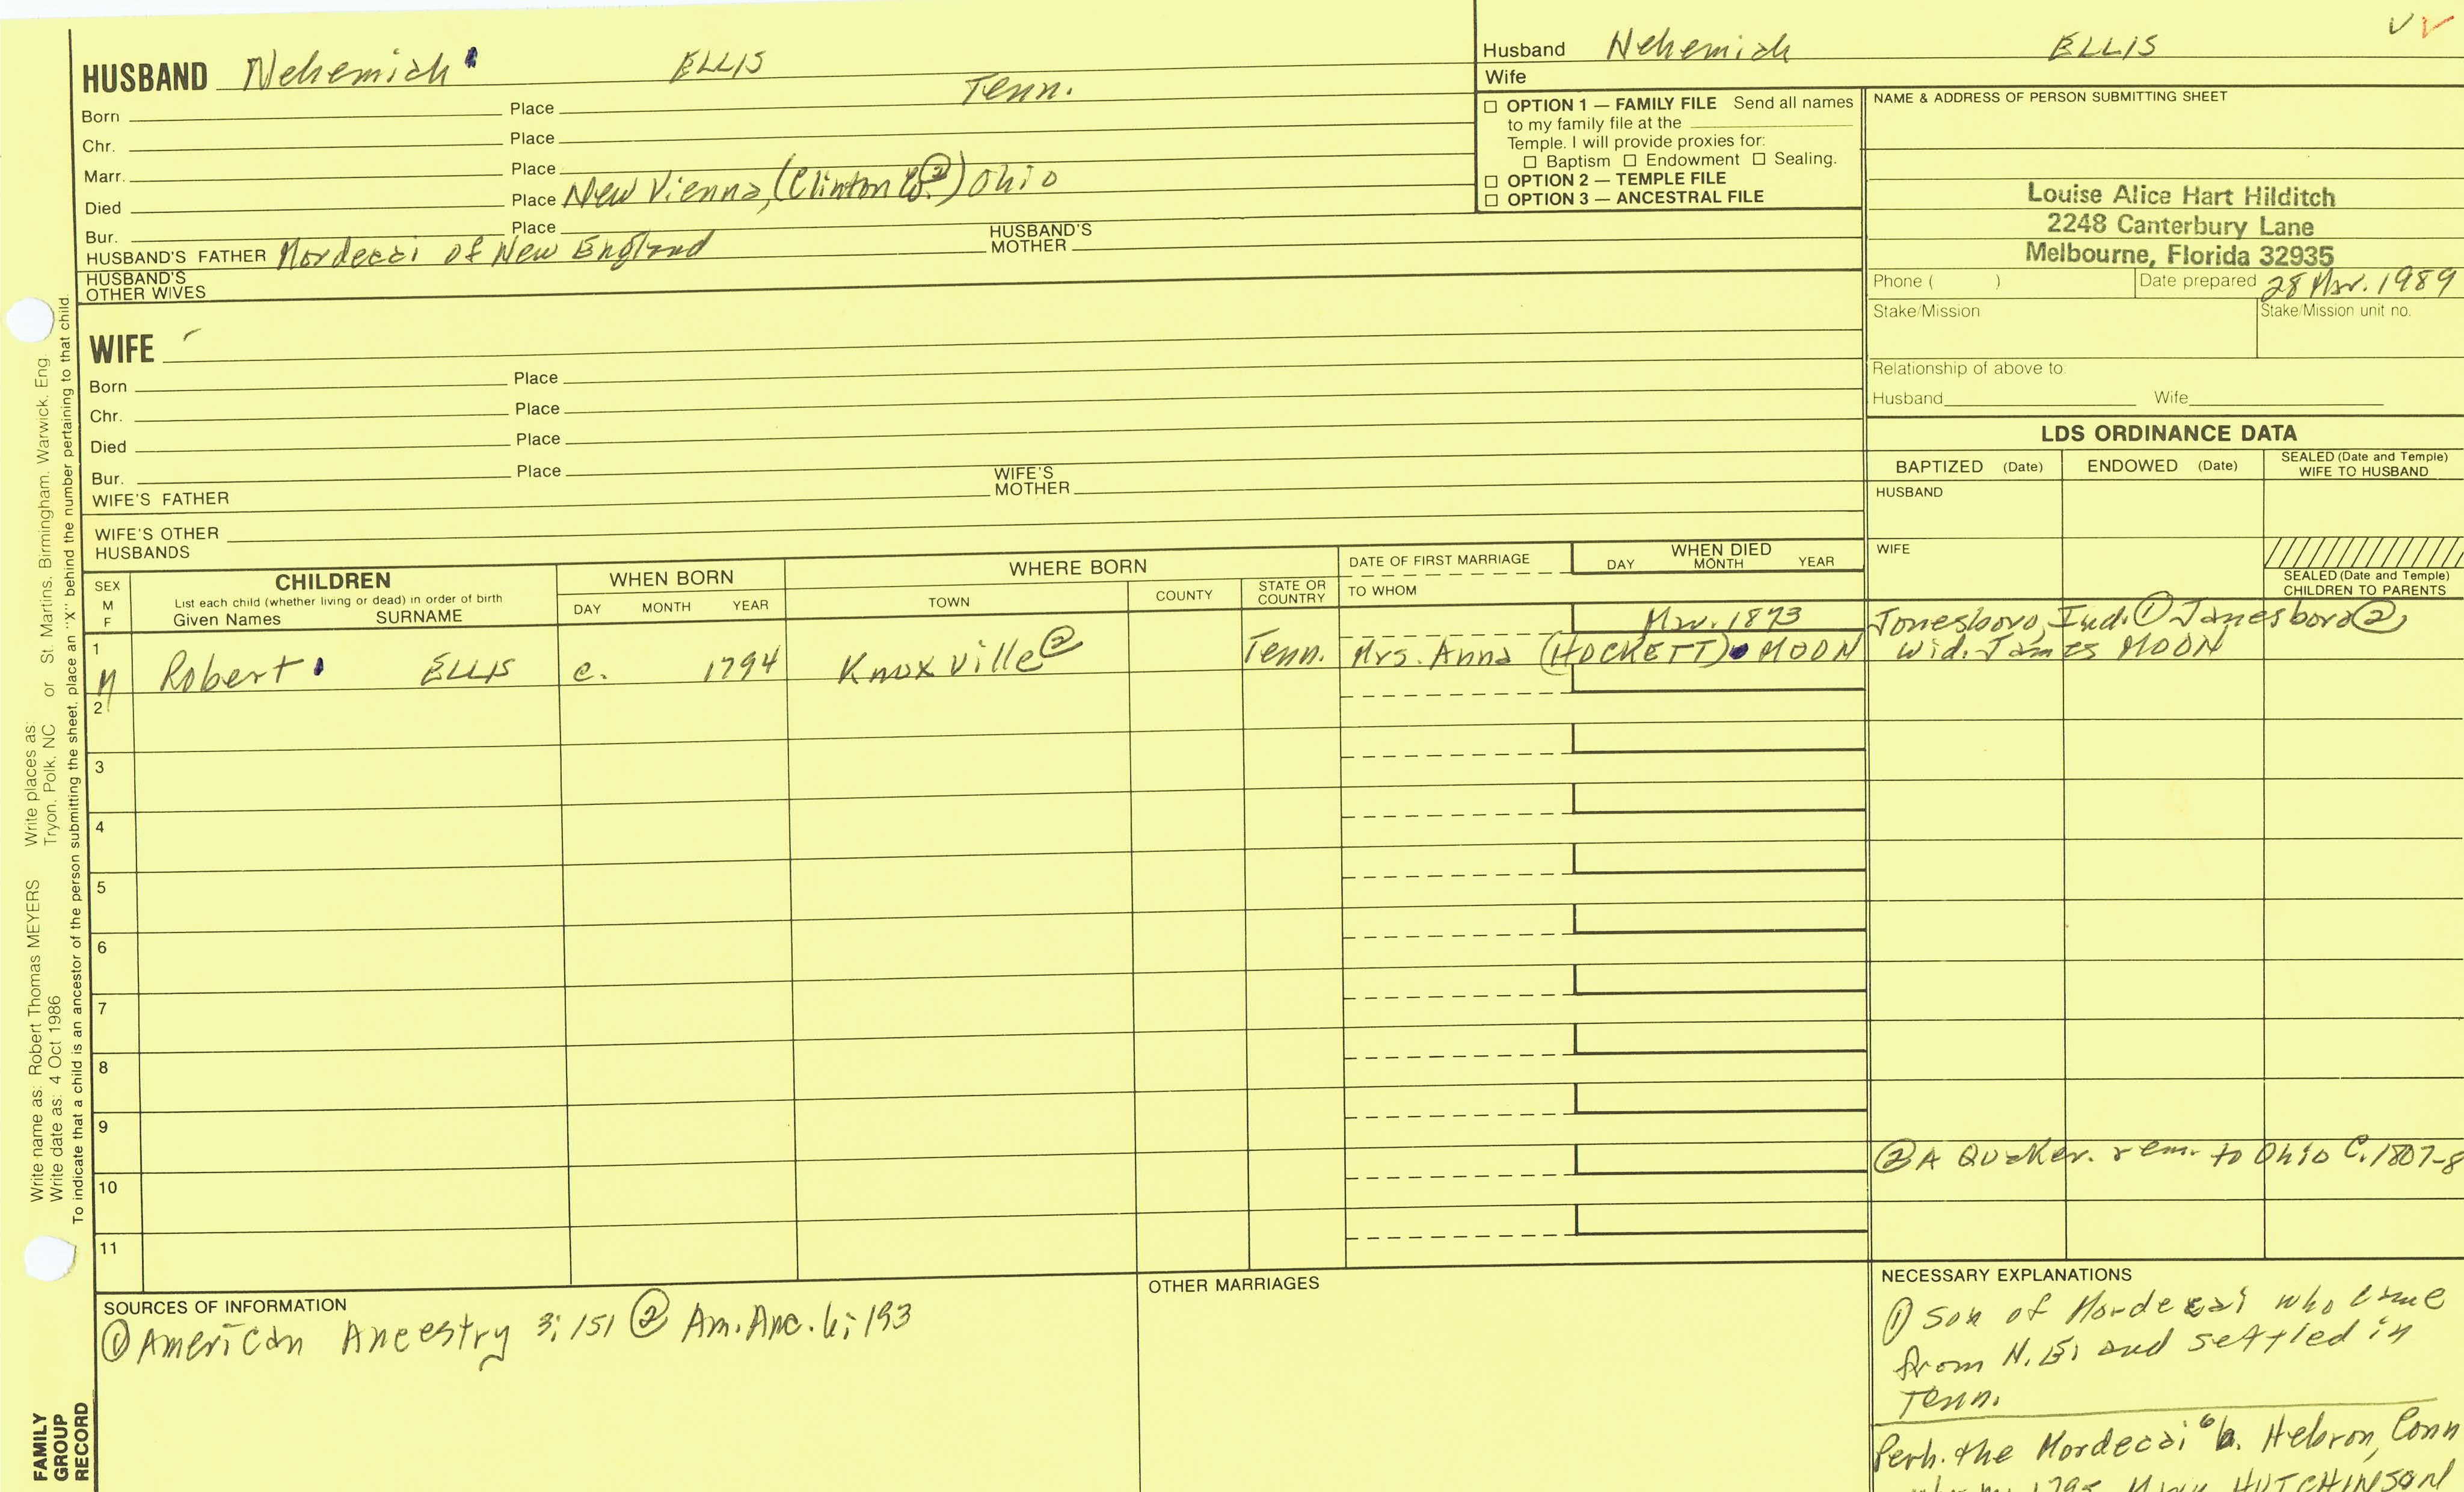 HUSBAND Nehemiah ELLIS
Tenn.
Born Place
Chr. Place
Marr. Place
Died Place New Vienna, (Clinton Co. ②) Ohio
Bur. Place
HUSBAND'S FATHER Mordecai of New England HUSBAND'S MOTHER
HUSBAND'S OTHER WIVES
WIFE
Born Place
Chr. Place
Died Place
Bur. Place
WIFE'S FATHER WIFE'S MOTHER
WIFE'S OTHER HUSBANDS
Husband Nehemiah ELLIS
Wife
☐ OPTION 1 — FAMILY FILE Send all names
to my family file at the
Temple. I will provide proxies for:
☐ Baptism ☐ Endowment ☐ Sealing.
☐ OPTION 2 — TEMPLE FILE
☐ OPTION 3 — ANCESTRAL FILE
NAME & ADDRESS OF PERSON SUBMITTING SHEET
Louise Alice Hart Hilditch
2248 Canterbury Lane
Melbourne, Florida 32935
Phone ( ) Date prepared 28 Mar. 1989
Stake/Mission Stake/Mission unit no.
Relationship of above to:
Husband Wife
LDS ORDINANCE DATA
BAPTIZED (Date) ENDOWED (Date) SEALED (Date and Temple) WIFE TO HUSBAND
HUSBAND
WIFE
SEALED (Date and Temple) CHILDREN TO PARENTS
SEX M F
CHILDREN
List each child (whether living or dead) in order of birth
Given Names SURNAME
WHEN BORN
DAY MONTH YEAR
WHERE BORN
TOWN COUNTY STATE OR COUNTRY
DATE OF FIRST MARRIAGE
TO WHOM
WHEN DIED
DAY MONTH YEAR
Mar. 1873 Jonesboro, Ind. ① Janesboro ②
1 M Robert ELLIS c. 1794 Knoxville ② Tenn. Mrs. Anna (HOCKETT) MOON wid. James MOON
2
3
4
5
6
7
8
9
② A Quaker. rem. to Ohio c. 1807-8
10
11
SOURCES OF INFORMATION
① American Ancestry 3; 151 ② Am. Anc. 6; 193
OTHER MARRIAGES
NECESSARY EXPLANATIONS
① Son of Mordecai who came
from N.E. and settled in
Tenn.
Perh. the Mordecai⁶ b. Hebron, Conn
1795 HUTCHINSON
Write name as: Robert Thomas MEYERS Write places as:
Write date as: 4 Oct 1986 Tryon, Polk, NC or St. Martins, Birmingham, Warwick, Eng
To indicate that a child is an ancestor of the person submitting the sheet, place an "X" behind the number pertaining to that child.
FAMILY
GROUP
RECORD